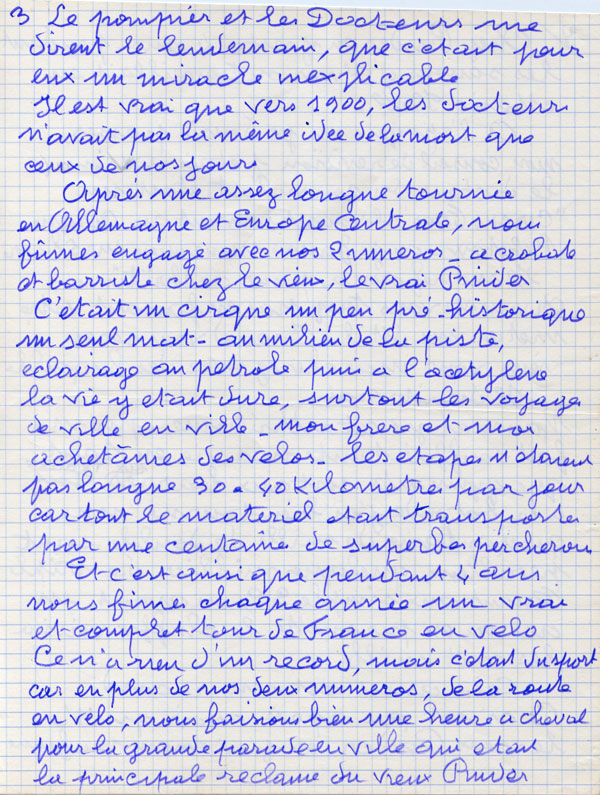 3 Le pompier et les Docteurs me
dirent le lendemain, que c'etait pour
eux un miracle inexplicable
Il est vrai que vers 1900, les docteurs
n'avait pas la même idee de la mort que
ceux de nos jours
Après une assez longue tournée
en Allemagne et Europe Centrale, nous
fûmes engagé avec nos 2 numeros - acrobate
et barriste chez le vieux, le vrai Pinder
C'était un cirque un peu pré-historique
un seul mat - au milieu de la piste,
eclairage au petrole puis a l'acetylene
la vie y etait dure, surtout les voyages
de ville en ville - mon frere et moi
achetâmes des velos - les etapes n'etaient
pas longue 30 a 40 Kilometres par jour
car tout le materiel etait transporte
par une centaine de superbes percherons
Et c'est ainsi que pendant 4 ans
nous fimes chaque année un vrai
et complet tour de France en velo
Ce n'a rien d'un record, mais c'etait du sport
car en plus de nos deux numeros, de la route
en velo, nous faisions bien une heure a cheval
pour la grande parade en ville qui etait
la principale reclame du vieux Pinder